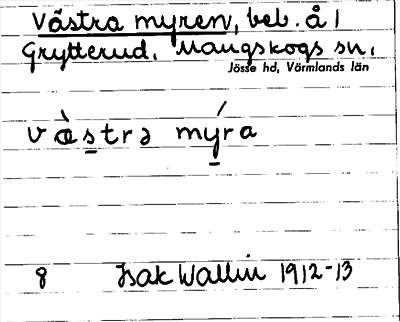 Västra myren, beb. å 1
Grytterud, Mangskogs sn,
Jösse hd, Värmlands län
væ̀s̠trə mý̠ra
8 Isak Wallin 1912-13